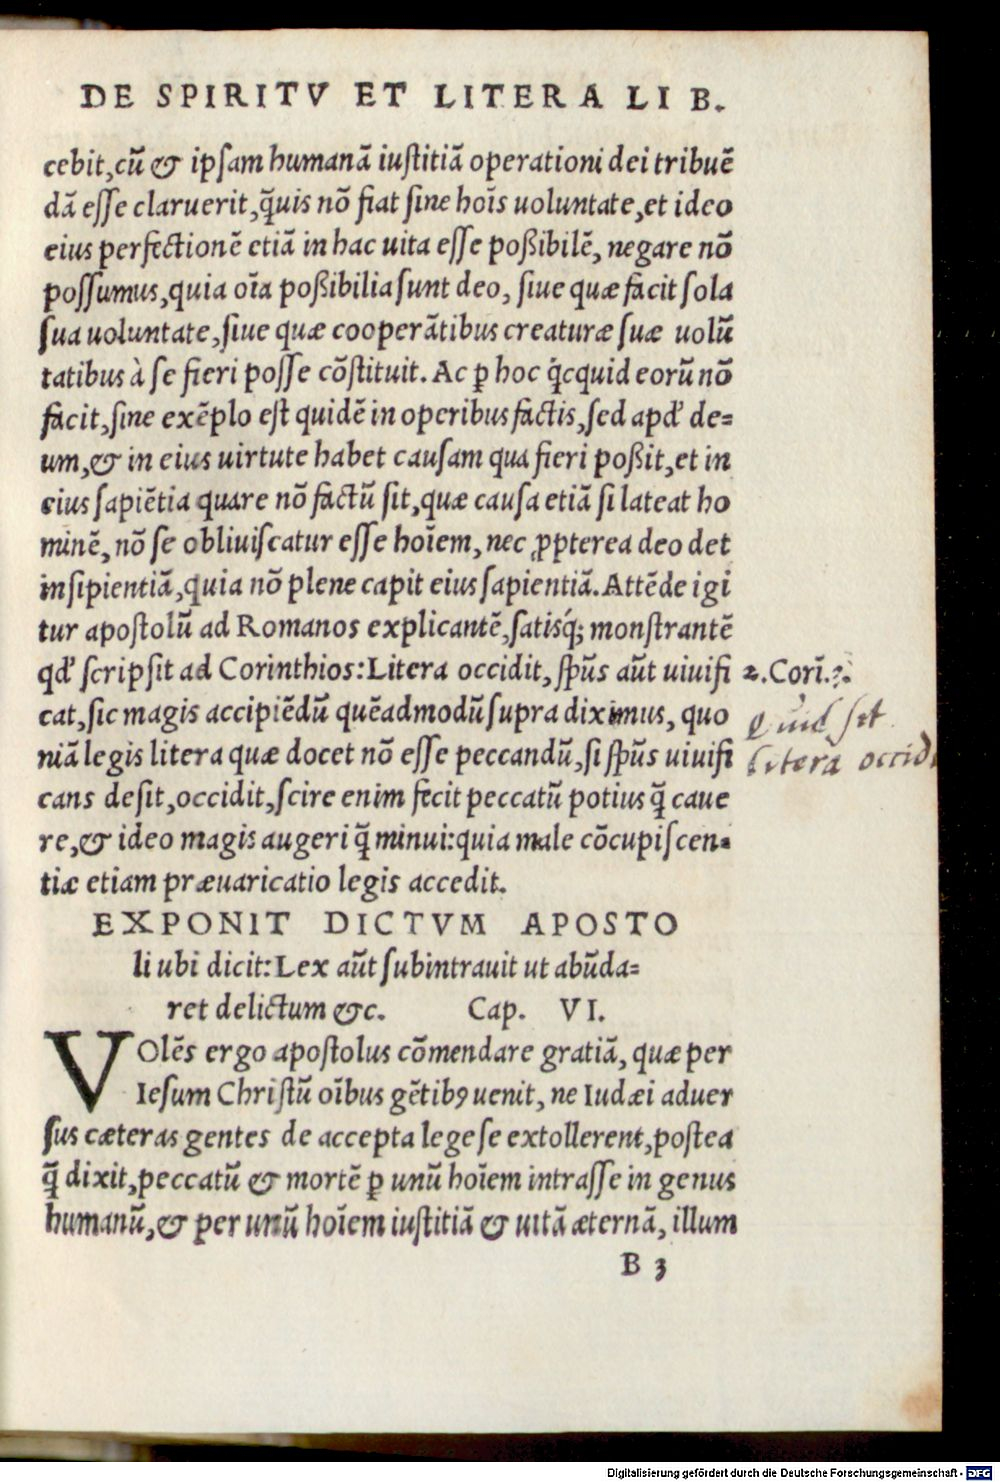 DE SPIRITV ET LITERA LIB.
cebit,cũ & ipſam humanã iuſtitiã operationi dei tribuẽ
dã eſſe claruerit,q̃uis nõ fiat ſine hoĩs uoluntate,et ideo
eius perfectionẽ etiã in hac uita eſſe poßibilẽ, negare nõ
poſſumus,quia oĩa poßibilia ſunt deo, ſiue quæ facit ſola
ſua uoluntate,ſiue quæ cooperãtibus creaturæ ſuæ uolũ
tatibus à ſe fieri poſſe cõſtituit. Ac ꝑ hoc q́cquid eorũ nõ
facit,ſine exẽplo eſt quidẽ in operibus factis,ſed apď de=
um,& in eius uirtute habet cauſam qua fieri poßit,et in
eius ſapiẽtia quare nõ factũ ſit,quæ cauſa etiã ſi lateat ho
minẽ, nõ ſe obliuiſcatur eſſe hoĩem, nec ꝓpterea deo det
inſipientiã,quia nõ plene capit eius ſapientiã. Attẽde igi
tur apoſtolũ ad Romanos explicantẽ,ſatisq́; monſtrantẽ
qď ſcripſit ad Corinthios: Litera occidit, ſpũs aũt uiuifi
2.Corĩ.3.
cat,ſic magis accipiẽdũ quẽadmodũ ſupra diximus, quo
Quid ſit
niã legis litera quæ docet nõ eſſe peccandũ,ſi ſpũs uiuifi
litera occid
cans deſit,occidit,ſcire enim fecit peccatũ potius q̃ caue
re,& ideo magis augeri q̃ minui:quia male cõcupiſcen=
tiæ etiam præuaricatio legis accedit.
EXPONIT DICTVM APOSTO
li ubi dicit: Lex aũt ſubintrauit ut abũda=
ret delictum &c. Cap. VI.
VOlẽs ergo apoſtolus cõmendare gratiã, quæ per
Ieſum Chriſtũ oĩbus gẽtibꝰ uenit, ne Iudæi aduer
ſus cæteras gentes de accepta lege ſe extollerent,poſtea
q̃ dixit,peccatũ & mortẽ ꝑ unũ hoĩem intraſſe in genus
humanũ,& per unũ hoĩem iuſtitiã & uitã æternã, illum
B 3
Digitalisierung gefördert durch die Deutsche Forschungsgemeinschaft - DFG